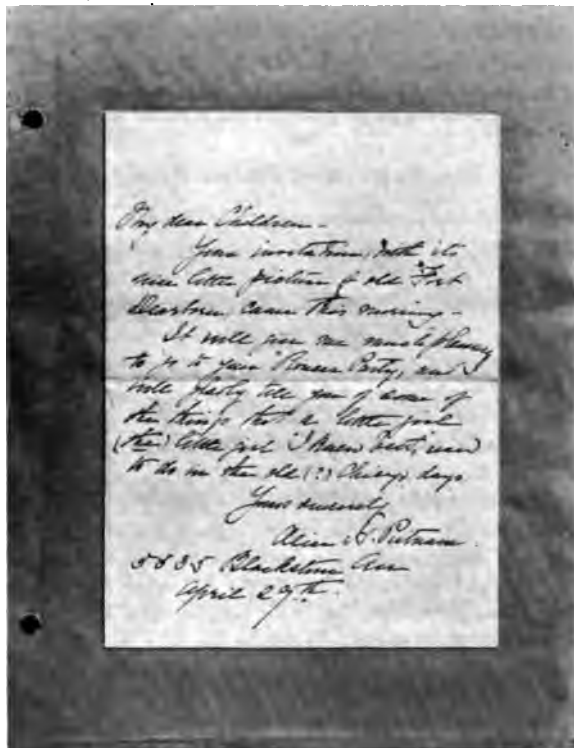 My dear Children -
Your invitation, with its
nice little picture of old Fort
Dearborn came this morning -
It will give me much pleasure
to go to your Pioneer Party, and
will gladly tell you of some of
the things that a little girl
(the) little girl I knew best, used
to do in the old (?) Chicago days
Yours sincerely
Alice H. Putnam.
5835 Blackstone Ave
April 29th.